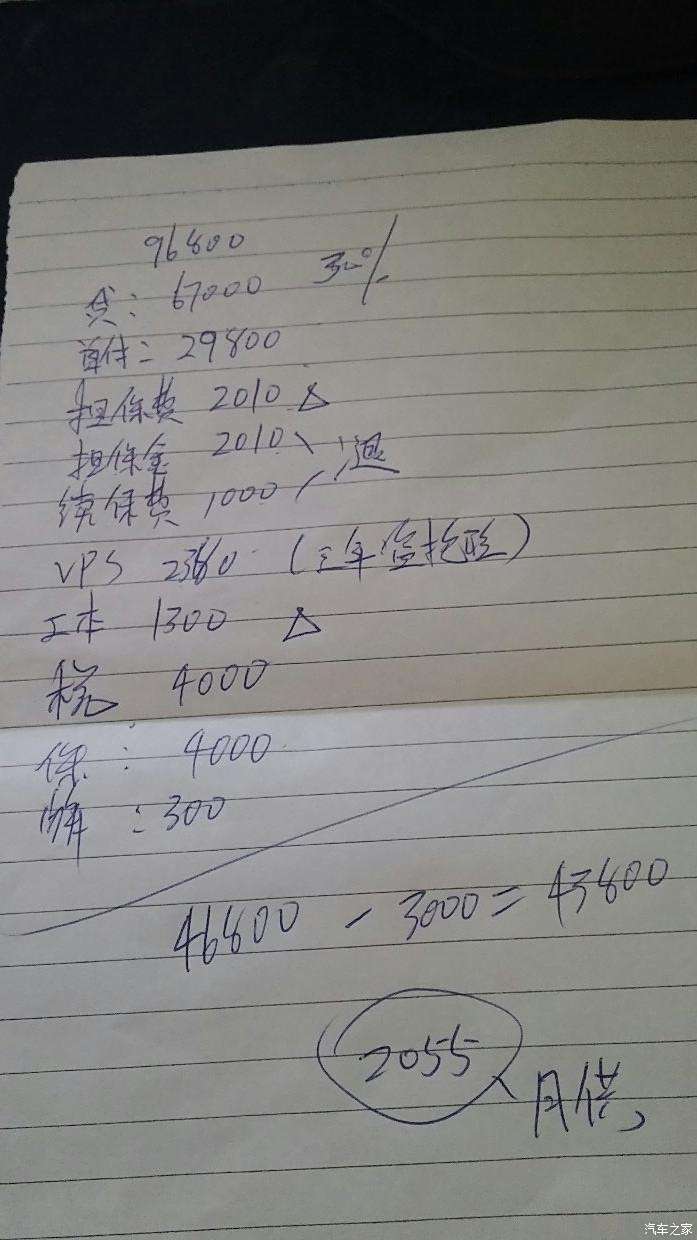 96800
贷: 67000 30%
首付: 29800
担保费 2010 △
担保金 2010 \
续保费 1000 / 退
VPS 2380 (三年盗抢险)
工本 1300 △
税 4000
保: 4000
牌: 300
46800 - 3000 = 43800
2055
月供
汽车之家